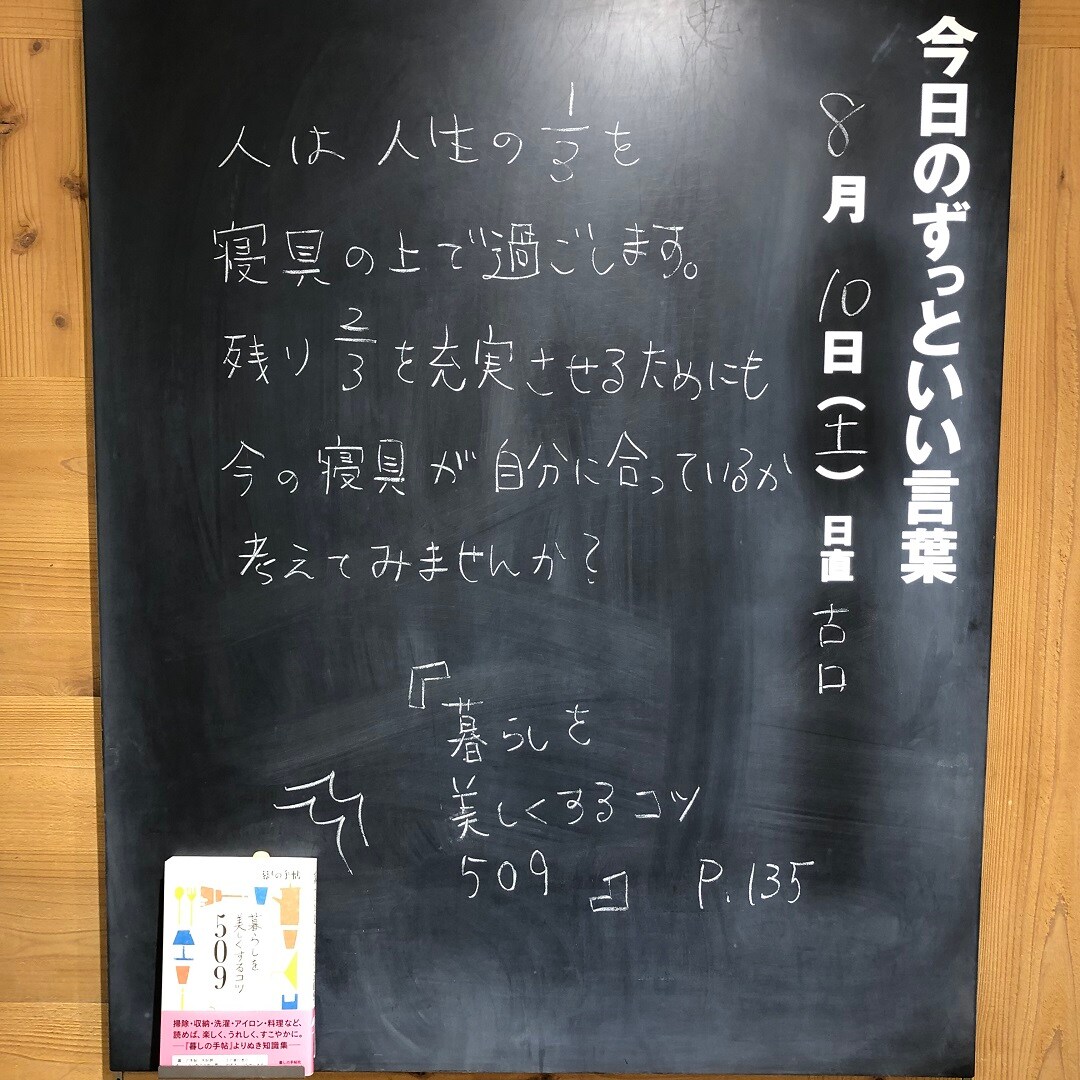 今日のずっといい言葉
8月10日(土) 日直 古口
人は人生の1/3を
寝具の上で過ごします。
残り2/3を充実させるためにも
今の寝具が自分に合っているか
考えてみませんか？
『暮らしを
美しくするコツ
509』 P.135
暮しの手帖
暮らしを
美しくするコツ
509
掃除・収納・洗濯・アイロン・料理など、
読めば、楽しく、うれしく、すこやかに。
『暮しの手帖』よりぬき知識集
暮しの手帖社